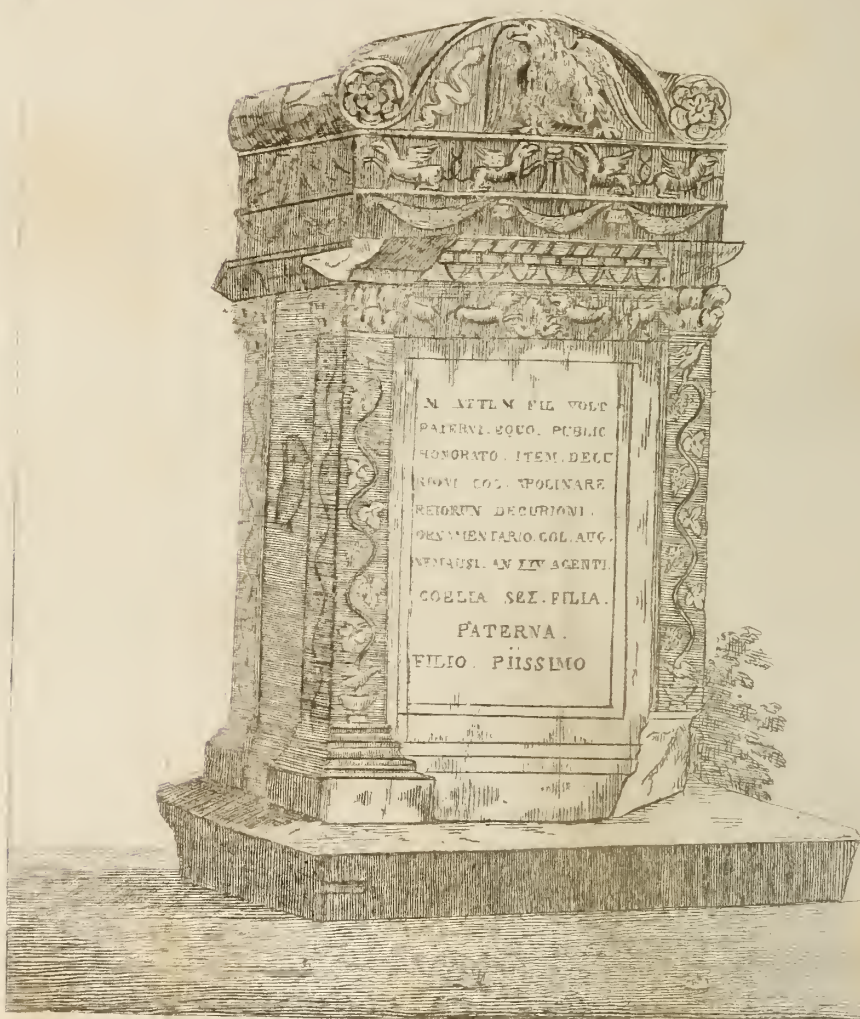 M ATTI M FIL VOLT
PATERNI . EQUO . PUBLIC
HONORATO . ITEM . DECU
RIONI COL . APOLINARE
REIORUN DECURIONI .
ORNAMENTARIO . COL . AUG .
NEMAUSI . AN XXV AGENTI .
COELIA SEX . FILIA .
PATERNA .
FILIO . PIISSIMO